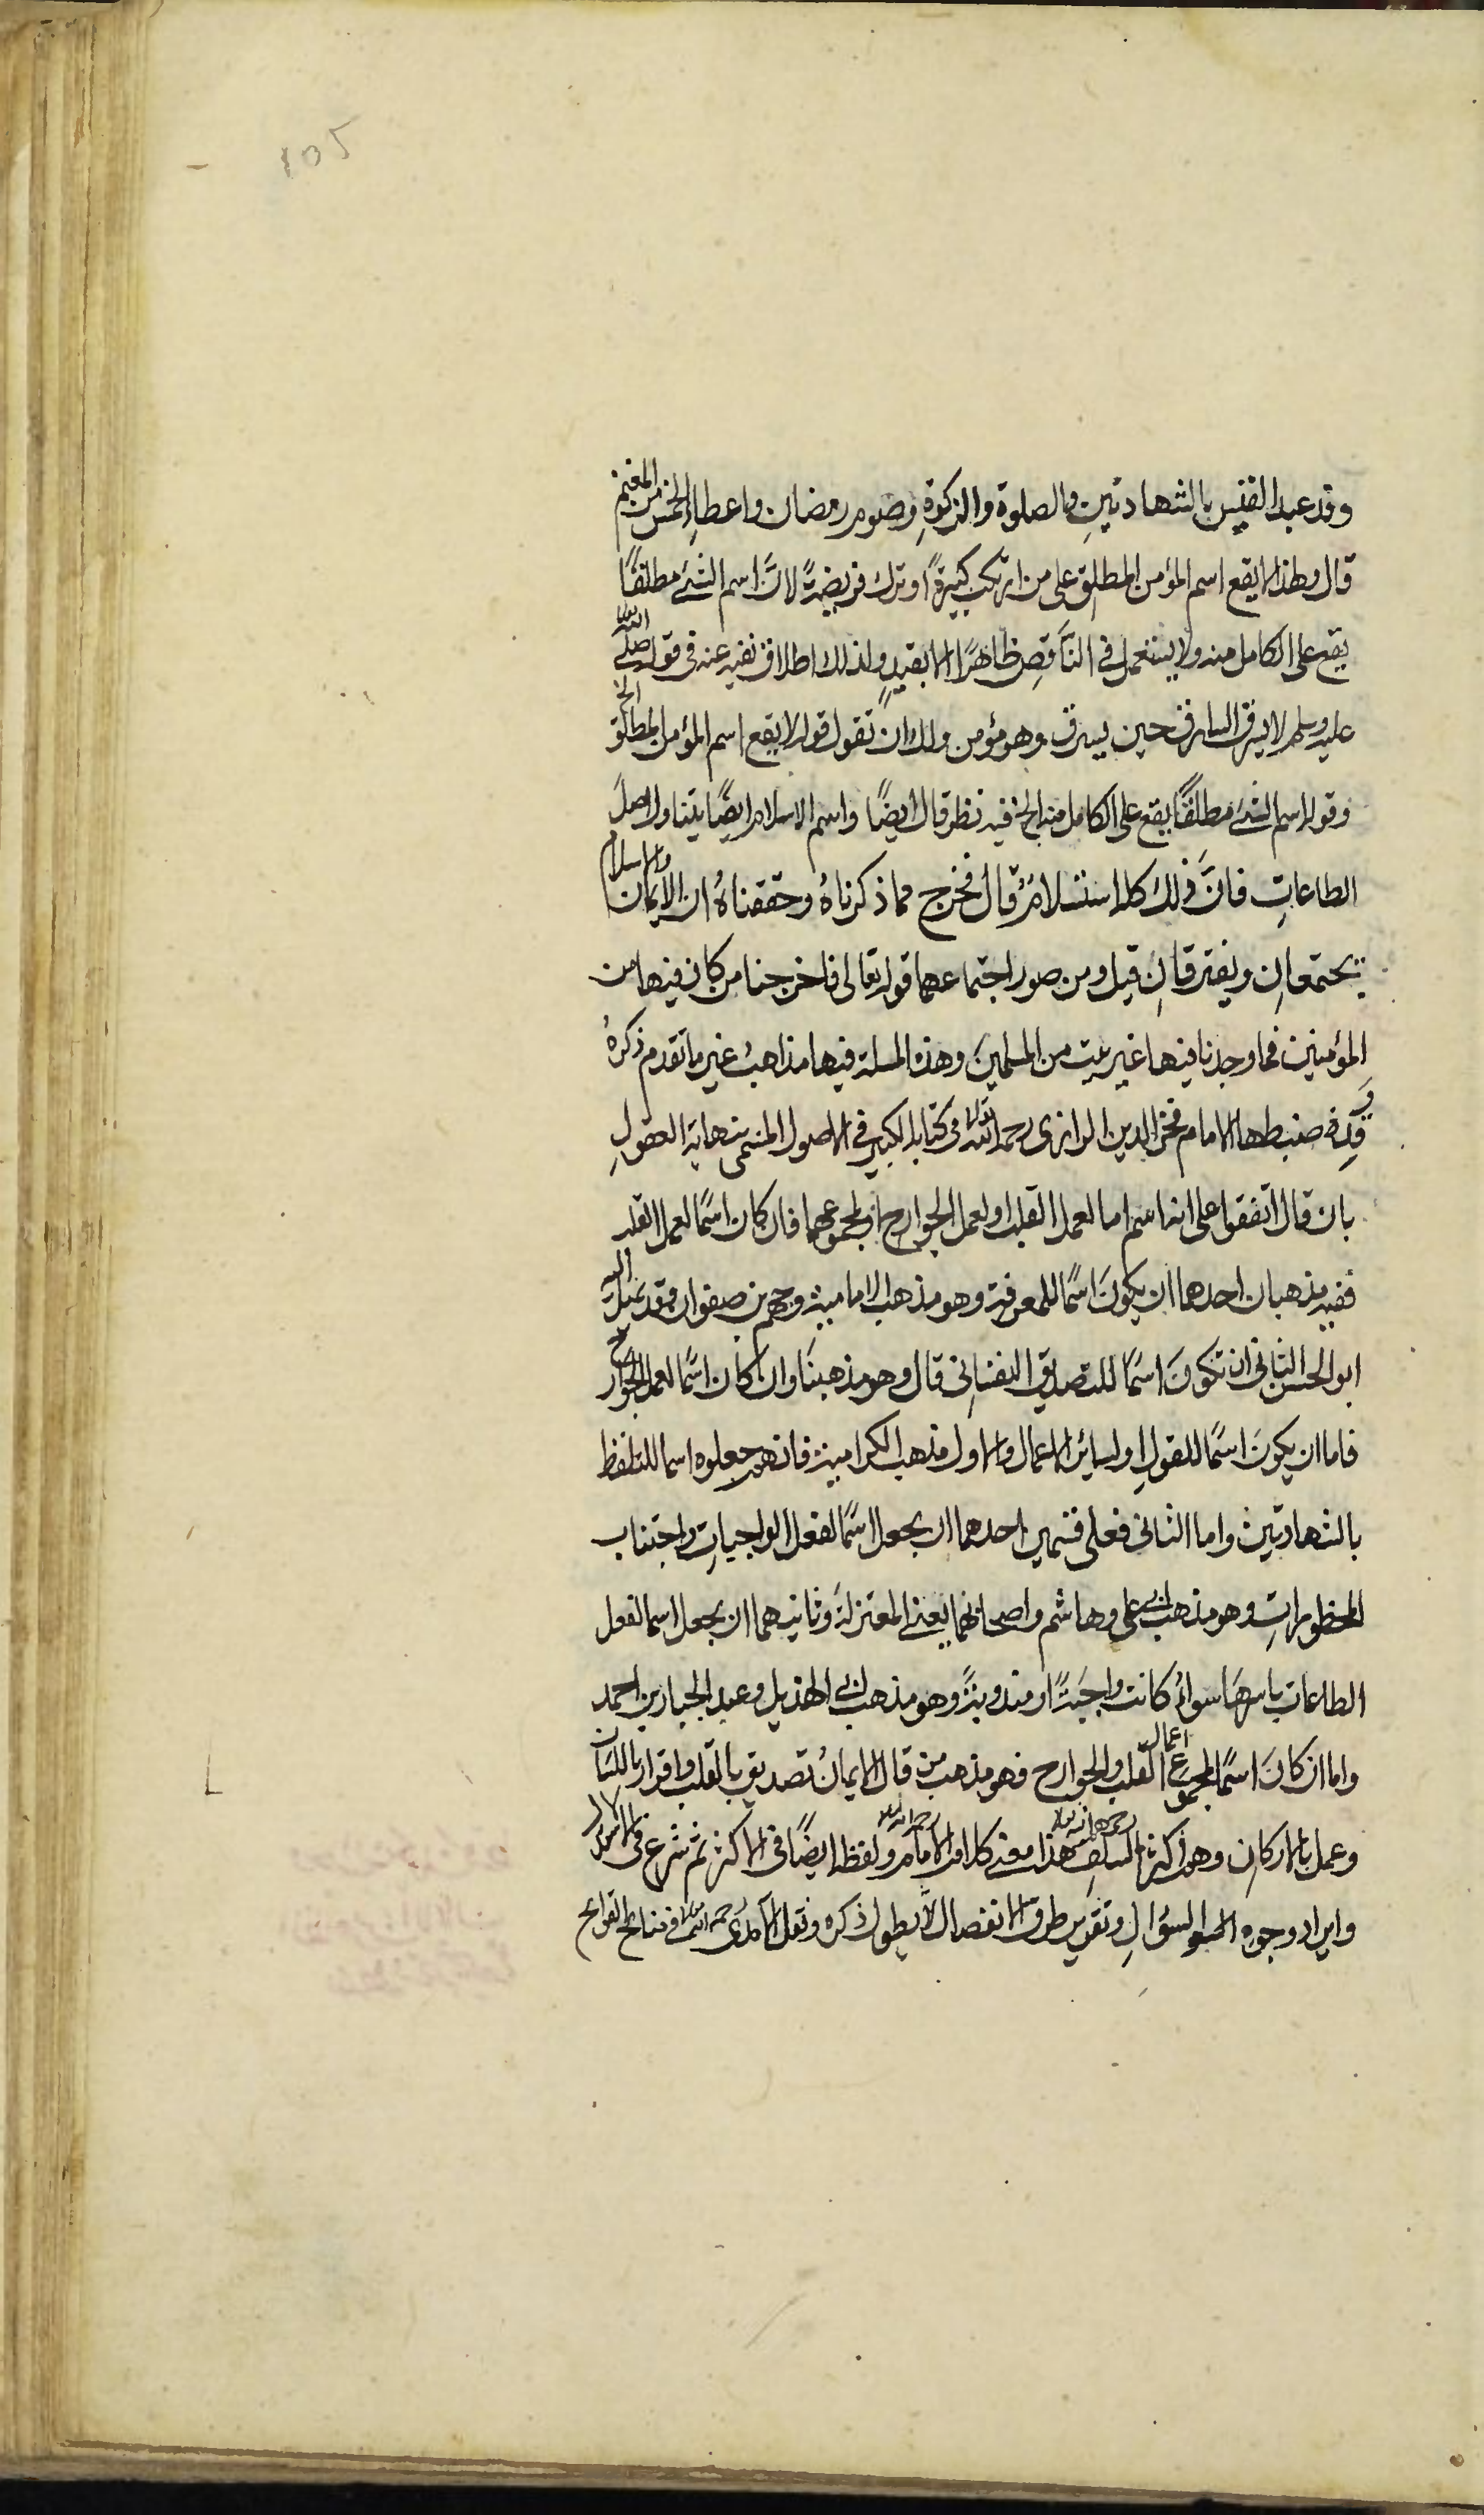 105
وفد عبد القيس بالشهادتين والصلوة والزكوة وصوم رمضان واعطاء الخمس من المغنم
قال ولهذا لا يقع اسم المؤمن المطلق على من ارتكب كبيرةً او ترك فريضةً لانَّ اسم الشئ مطلقًا
يقع على الكامل منه ولا يستعمل في النَّاقِصِ ظاهرًا الا بقيدٍ ولذلك اطلاق نفيه عنه في قوله صلى الله
عليه وسلم لا يسرق السارق حين يسرق وهو مؤمن ولك ان تقول قوله لا يقع اسم المؤمن المطلق الخ
وقوله اسم الشئ مطلقًا يقع على الكامل منه الخ فيه نظر قال ايضًا واسم الاسلام ايضًا يتناول اصل
الطاعاتِ فانَّ ذلك كله استسلامٌ قال فخرج مما ذكرناهُ وحققناهُ ان الايمان والاسلام
يجتمعانِ ويفترقانِ قيل ومن صور اجتماعهما قوله تعالى فاخرجنا من كان فيها من
المؤمنين فما وجدنا فيها غير بيت من المسلمين وهذه المسلة فيها مذاهبُ غير ما تقدم ذكرهُ
وَقد ضبطها الامام فخر الدين الرازى رحمه الله تعالى في كتابه الكبير في الاصول المسمى بنهاية العقولِ
بان قال اتفقوا على انه اسم اما لعمل القلب او لعمل الجوارح او لمجموعهما فان كان اسمًا لعمل القلب
ففيه مذهبان احدهما ان يكونَ اسمًا للمعرفة وهو مذهب الامامية وجهم بن صفوان وقد يميل اليه
ابو الحسن الثاني ان تكونَ اسمًا للتصديق النفسانى قال وهو مذهبنا وان كان اسمًا لعمل الجوارح
فاما ان يكونَ اسمًا للقولِ او لسائر الاعمال والاول مذهب الكرامية فانهم جعلوه اسما للتلفظ
بالشهادتين واما الثانى فعلى قسمين احدهما ان يجعل اسمًا لفعل الواجباتِ واجتناب
المحظوراتِ وهو مذهب ابى على وهاشم واصحابهما يعنى المعتزلة وثانيهما ان يجعل اسما لفعل
الطاعات باسرها سواءٌ كانت واجبةً او مندوبةً وهو مذهب ابى الهذيل وعبد الجبار بن احمد
واما ان كانَ اسمًا لمجموع اعمال القلب والجوارح فهو مذهب من قال الايمانُ تصديق بالقلب واقرار باللسان
وعمل بالاركان وهم اكثر السلف رحمهم الله هذا معنى كلام الامام رحمه الله ولفظه ايضًا فى الاكثر ثم شرع فى الاستدلال
وايراد وجوه السؤالِ وتقرير طرق الانفصال لا يطول ذكره ونقل الآمدى رحمه الله فى نتائج القرائح